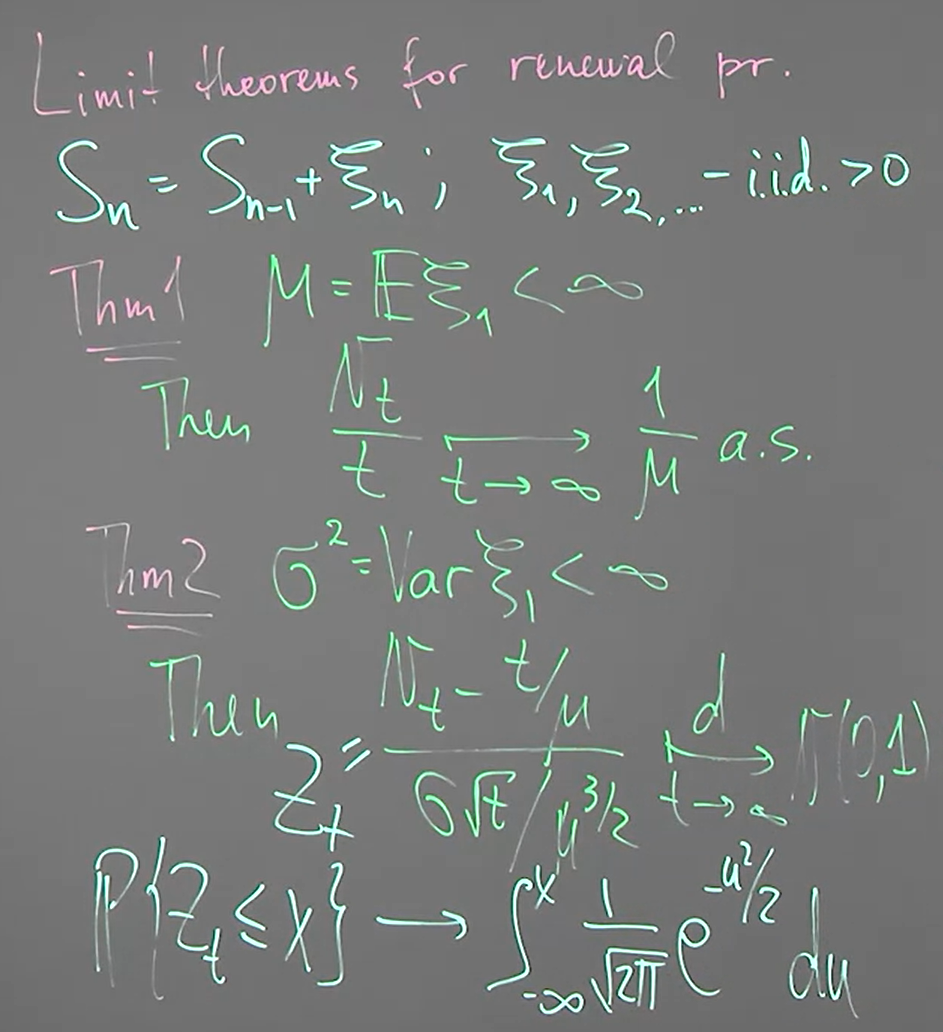 Limit theorems for renewal pr.
Sₙ = Sₙ₋₁ + ξₙ ; ξ₁, ξ₂, ... - i.i.d. > 0
Thm 1 μ = 𝔼ξ₁ < ∞
Then Nₜ/t ⟶ (t→∞) 1/μ a.s.
Thm 2 σ² = Var ξ₁ < ∞
Then Zₜ = (Nₜ - t/μ) / (σ√t/μ^{3/2}) ⟶ (d, t→∞) N(0,1)
ℙ{Zₜ ≤ x} ⟶ ∫_{-∞}^{x} 1/√(2π) e^{-u²/2} du